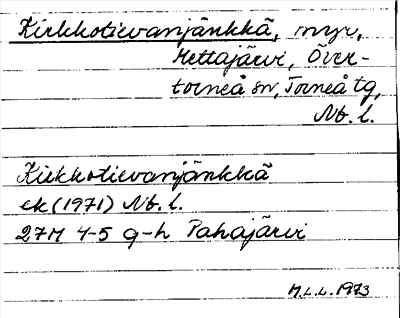 Kirkkotievanjänkkä, myr,
Hettajärvi, Över-
torneå sn, Torneå tg,
Nb. l.
Kirkkotievanjänkkä
ek (1971) Nb. l.
27M 4-5 g-h Pahajärvi
M.L.L. 1973